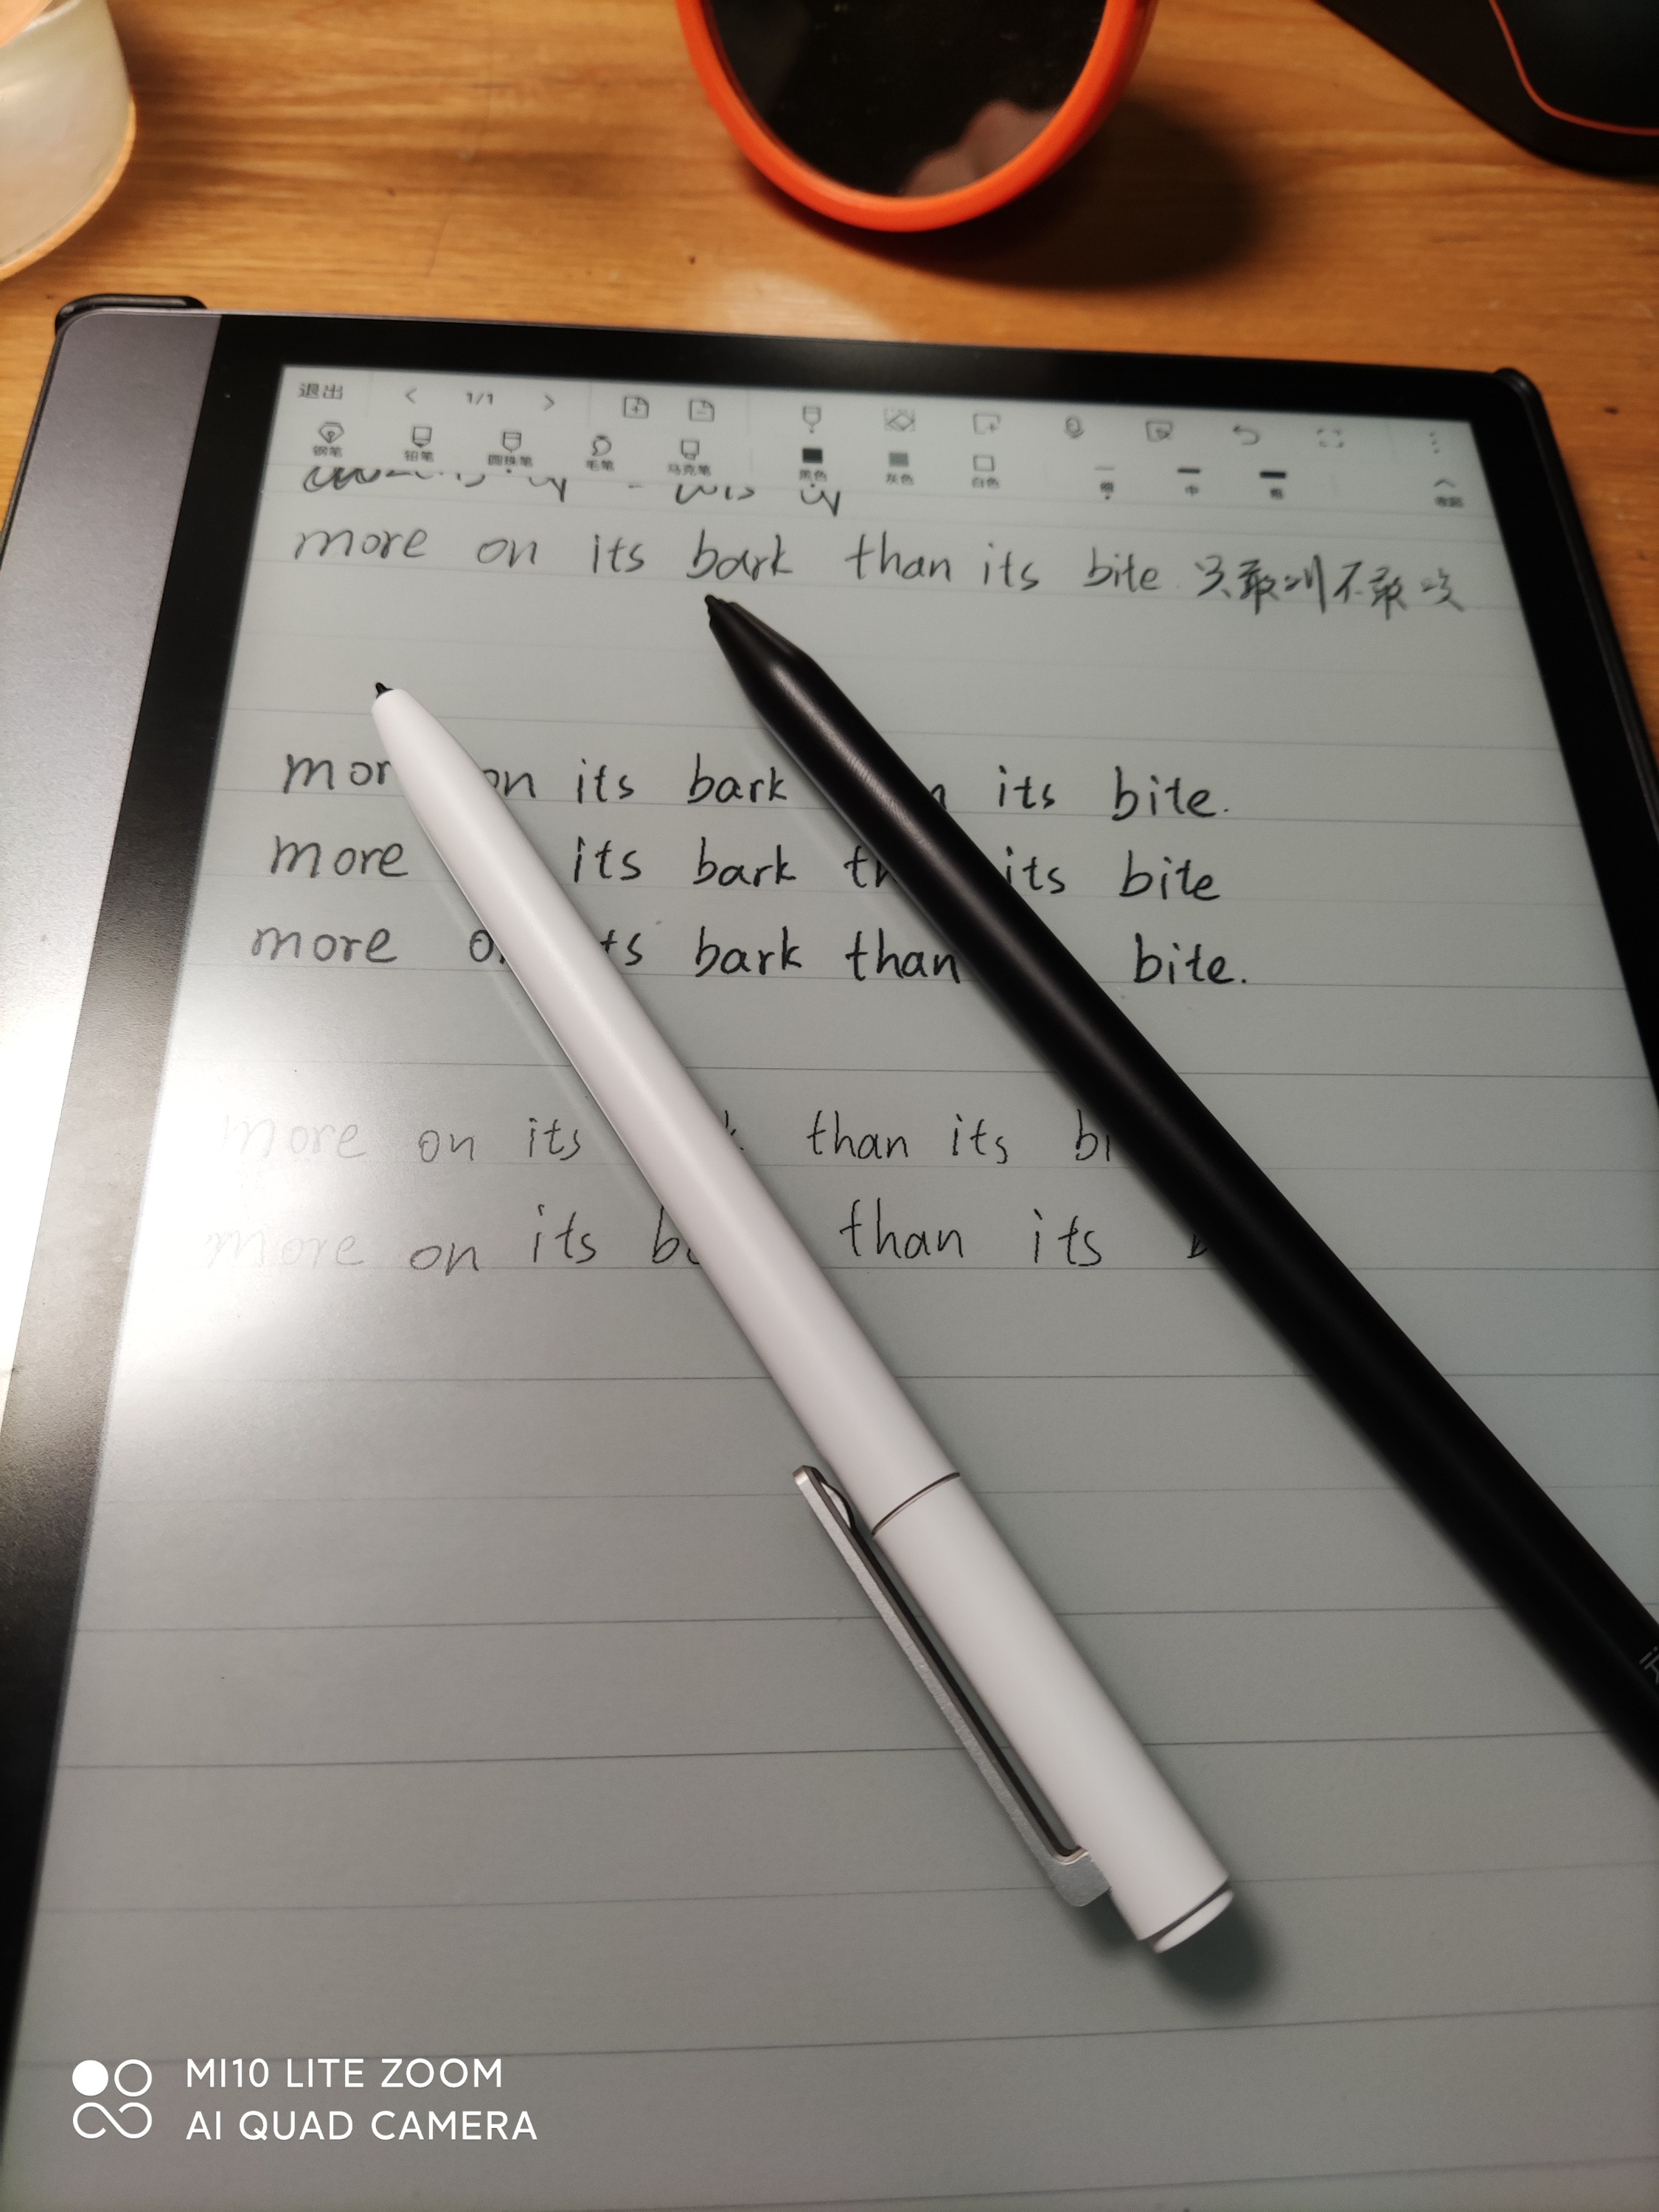 退出 < 1/1 >
钢笔 铅笔 圆珠笔 毛笔 马克笔 黑色 灰色 白色 细 中 粗 收起
more on its bark than its bite 只敢叫不敢咬
mor on its bark n its bite.
more its bark th its bite
more o ts bark than bite.
more on its k than its bi
more on its ba than its b
MI10 LITE ZOOM
AI QUAD CAMERA